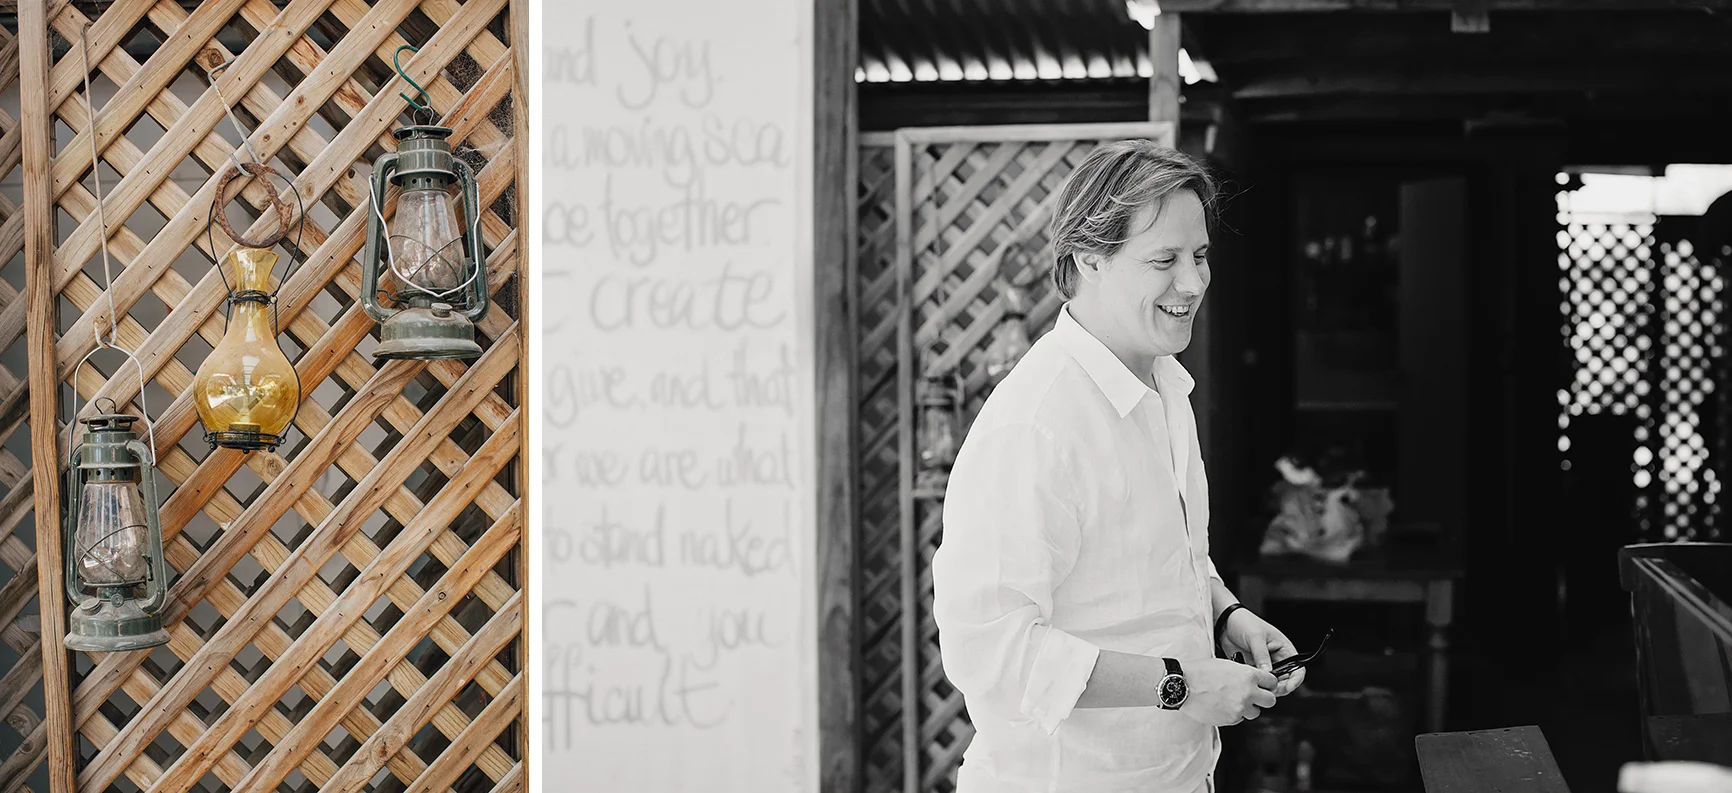 and joy.
a moving sea
be together.
create
give, and that
we are what
to stand naked
and you
fficult